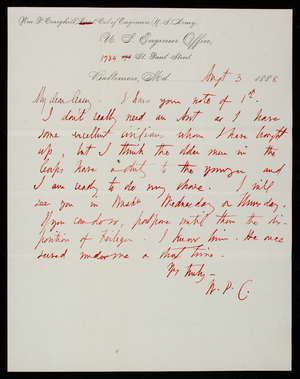 Wm. P. Craighill, Col. of Engineers, U. S. Army.
U. S. Engineer Office,
1734 St. Paul Street
Baltimore, Md. Augt 3 1888
My dear Casey. I have your note of 1st.
I don't really need an Asst as I have
some excellent civilians whom I have brought
up, but I think the older men in the
Corps have a duty to the younger and
I am ready to do my share. I will
see you in Washn Wednesday or Thursday.
If you can do so, postpone until then the dis-
position of Fieberger. I know him. He once
served under me a short time.
Yrs truly
W. P. C.